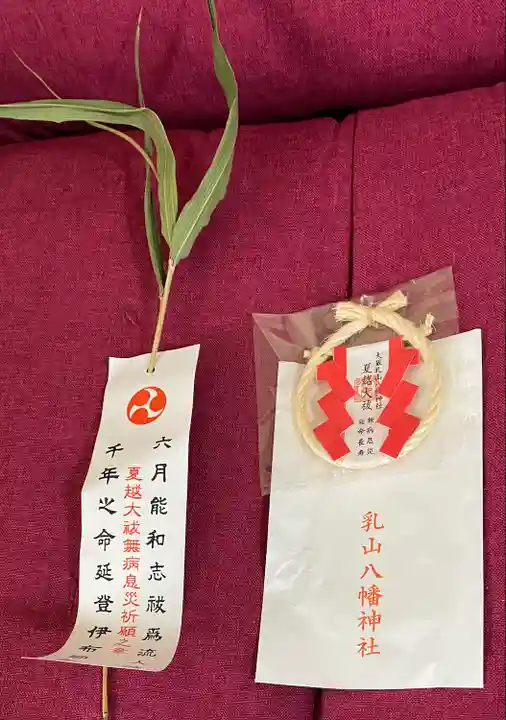 六月能和志祓爲流人
夏越大祓無病息災祈願之
千年之命延登伊布
夏越大祓
無病息災
延命長寿
乳山八幡神社